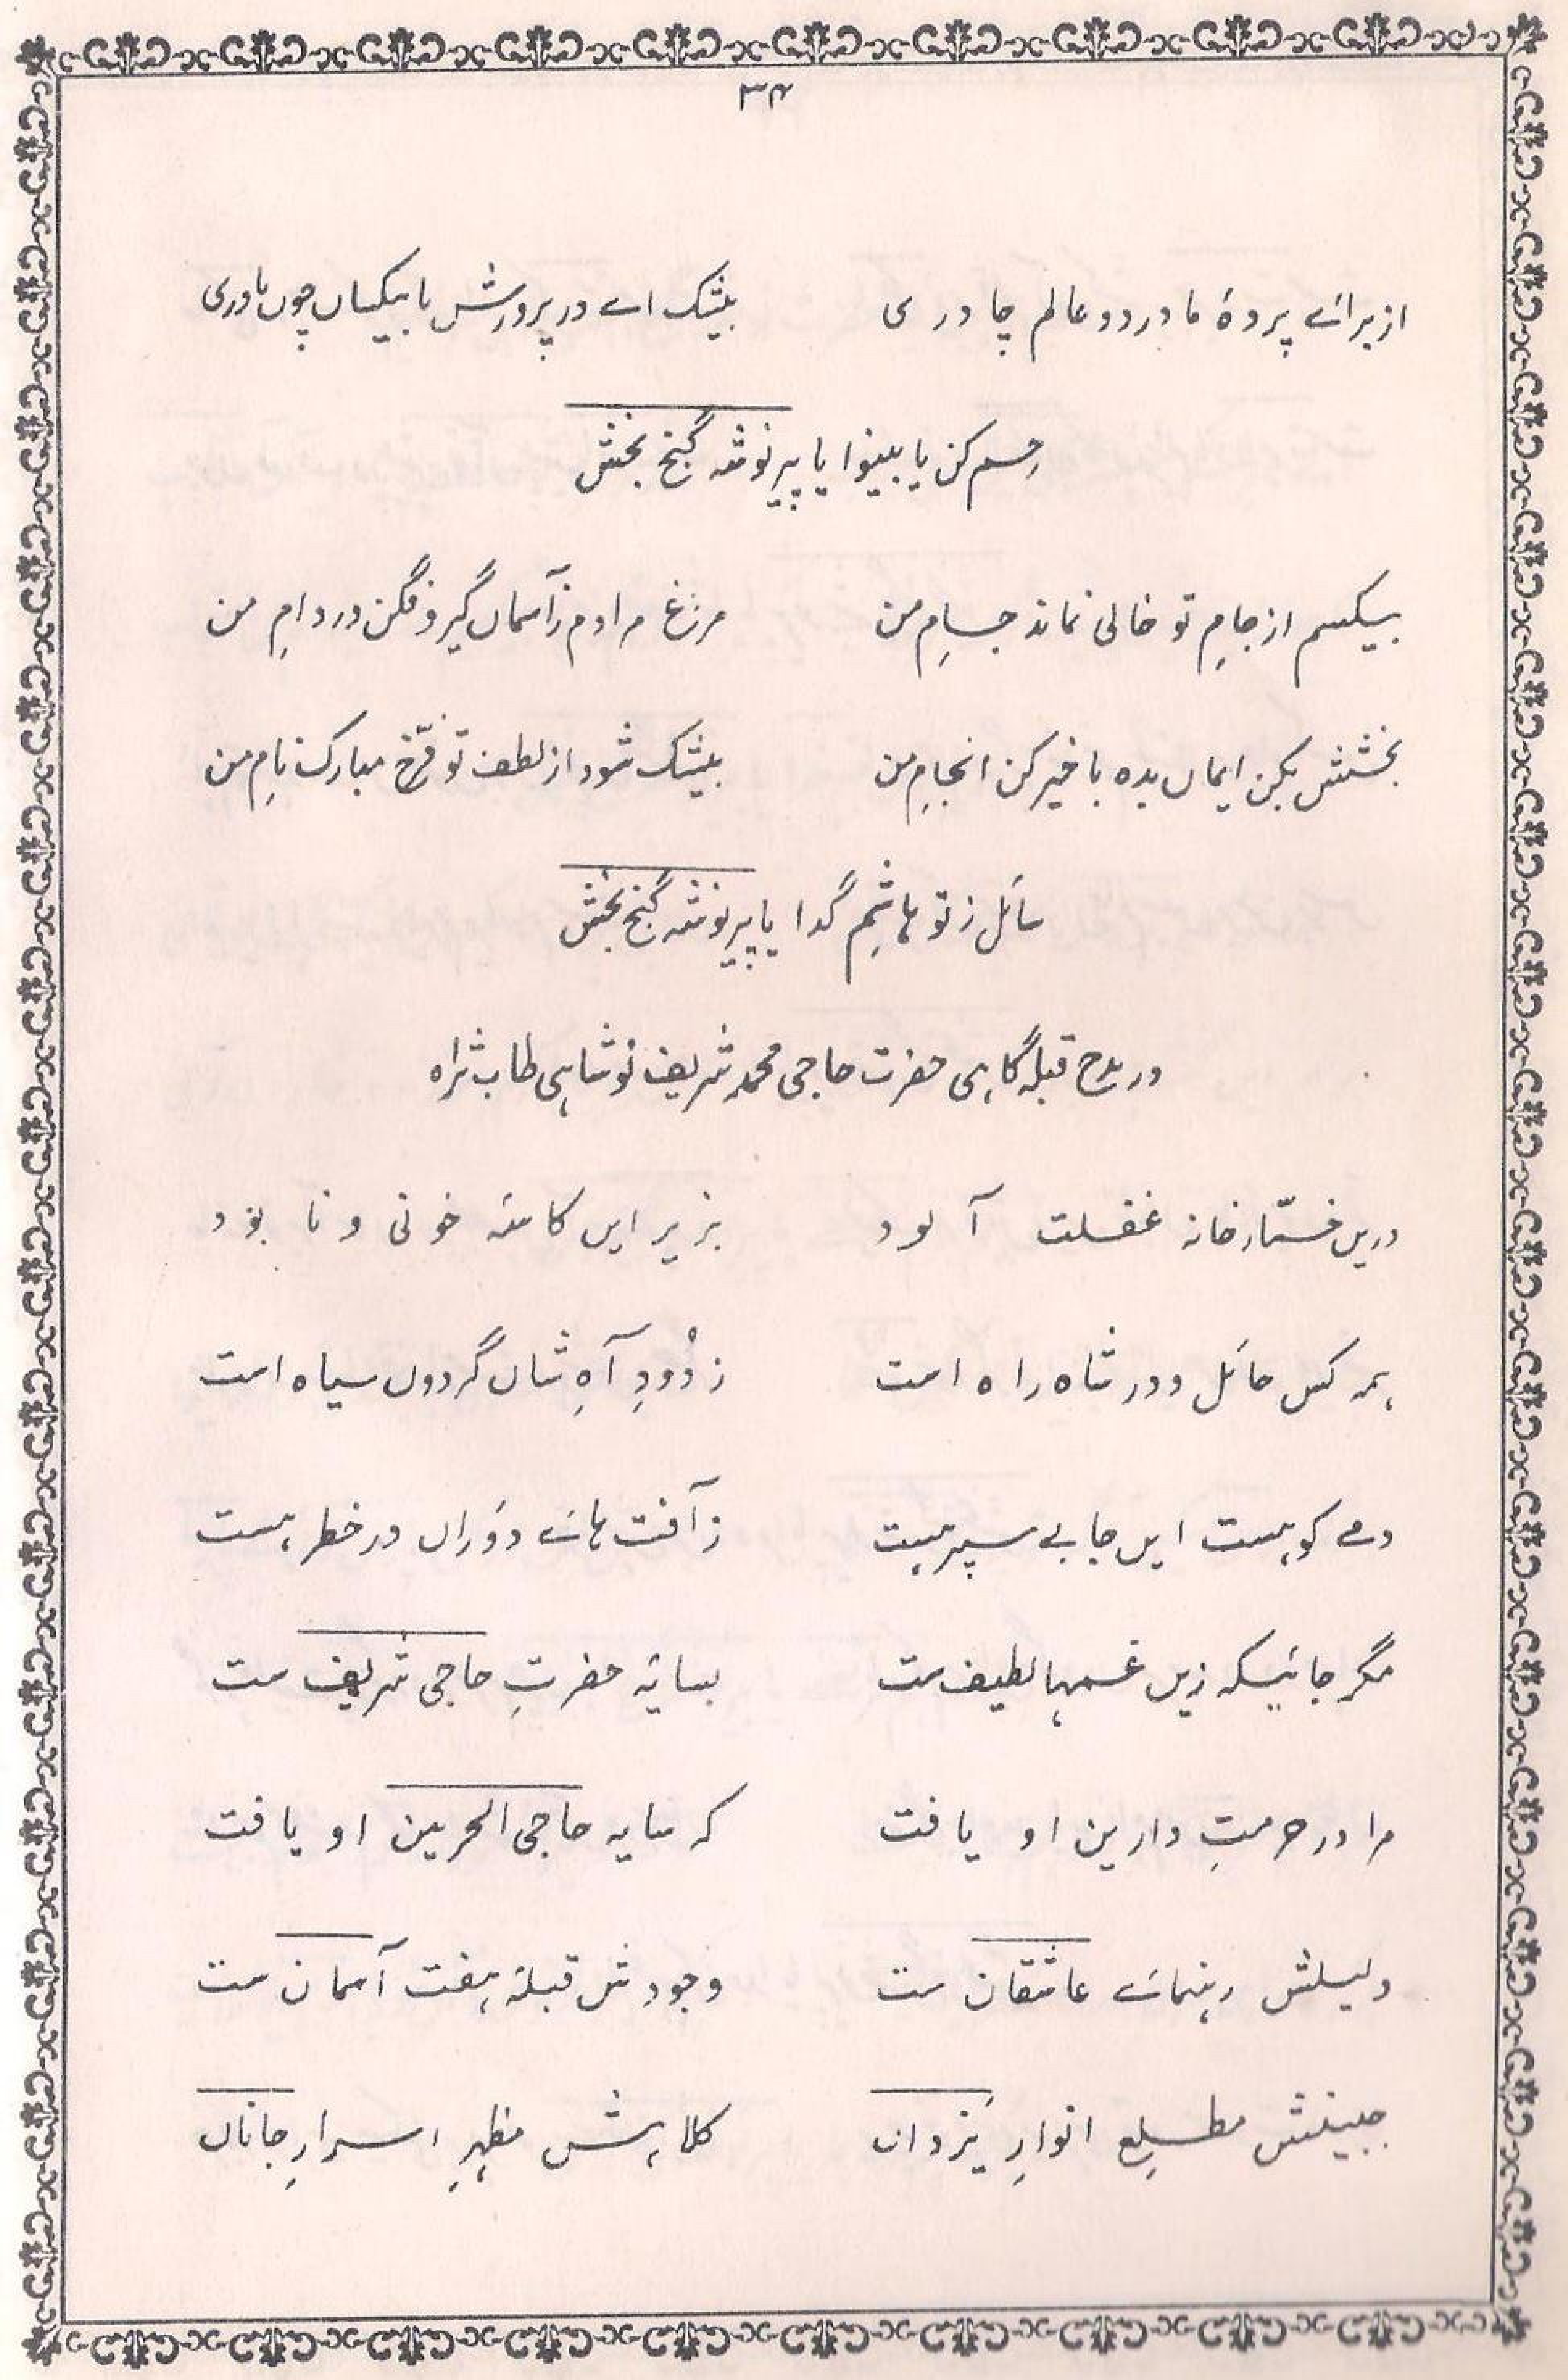 ۳۴
از برائے پردۂ ما در دو عالم چادری بیشک اے در پرورش با بیکساں چوں مادری
رحم کن با بینوا یا پیر نوشہ گنج بخش
بیکسم از جامِ تو خالی نماند جامِ من مرغ مرادم ز آسماں گیر و فگن در دامِ من
بخشش بکن ایماں بده با خیر کن انجامِ من بیشک شود از لطف تو فرّخ مبارک نامِ من
سائل ز تو ہاشِم گدا یا پیر نوشہ گنج بخش
در مدح قبلہ گاہی حضرت حاجی محمد شریف نوشاہی طاب ثراه
دریں خمّار خانہ غفلت آلود بزیر ایں کاسۂ خونی و نابود
ہمہ کس مائل و در شاه راه است ز دُودِ آهِ شاں گردوں سیاه است
دمے کو ہست ایں جا بے سپر ہست ز آفت ہائے دَوراں در خطر ہست
مگر جائیکہ زیں غمہا لطیف ست بسایۂ حضرتِ حاجی شریف ست
مرا در حرمتِ دارین او یافت کہ سایہ حاجی الحرمین او یافت
دلیلش رہنمائے عاشقان ست وجودش قبلۂ ہفت آسمان ست
جبینش مطلعِ انوارِ یَزداں کلامش مظہرِ اسرارِ جاناں